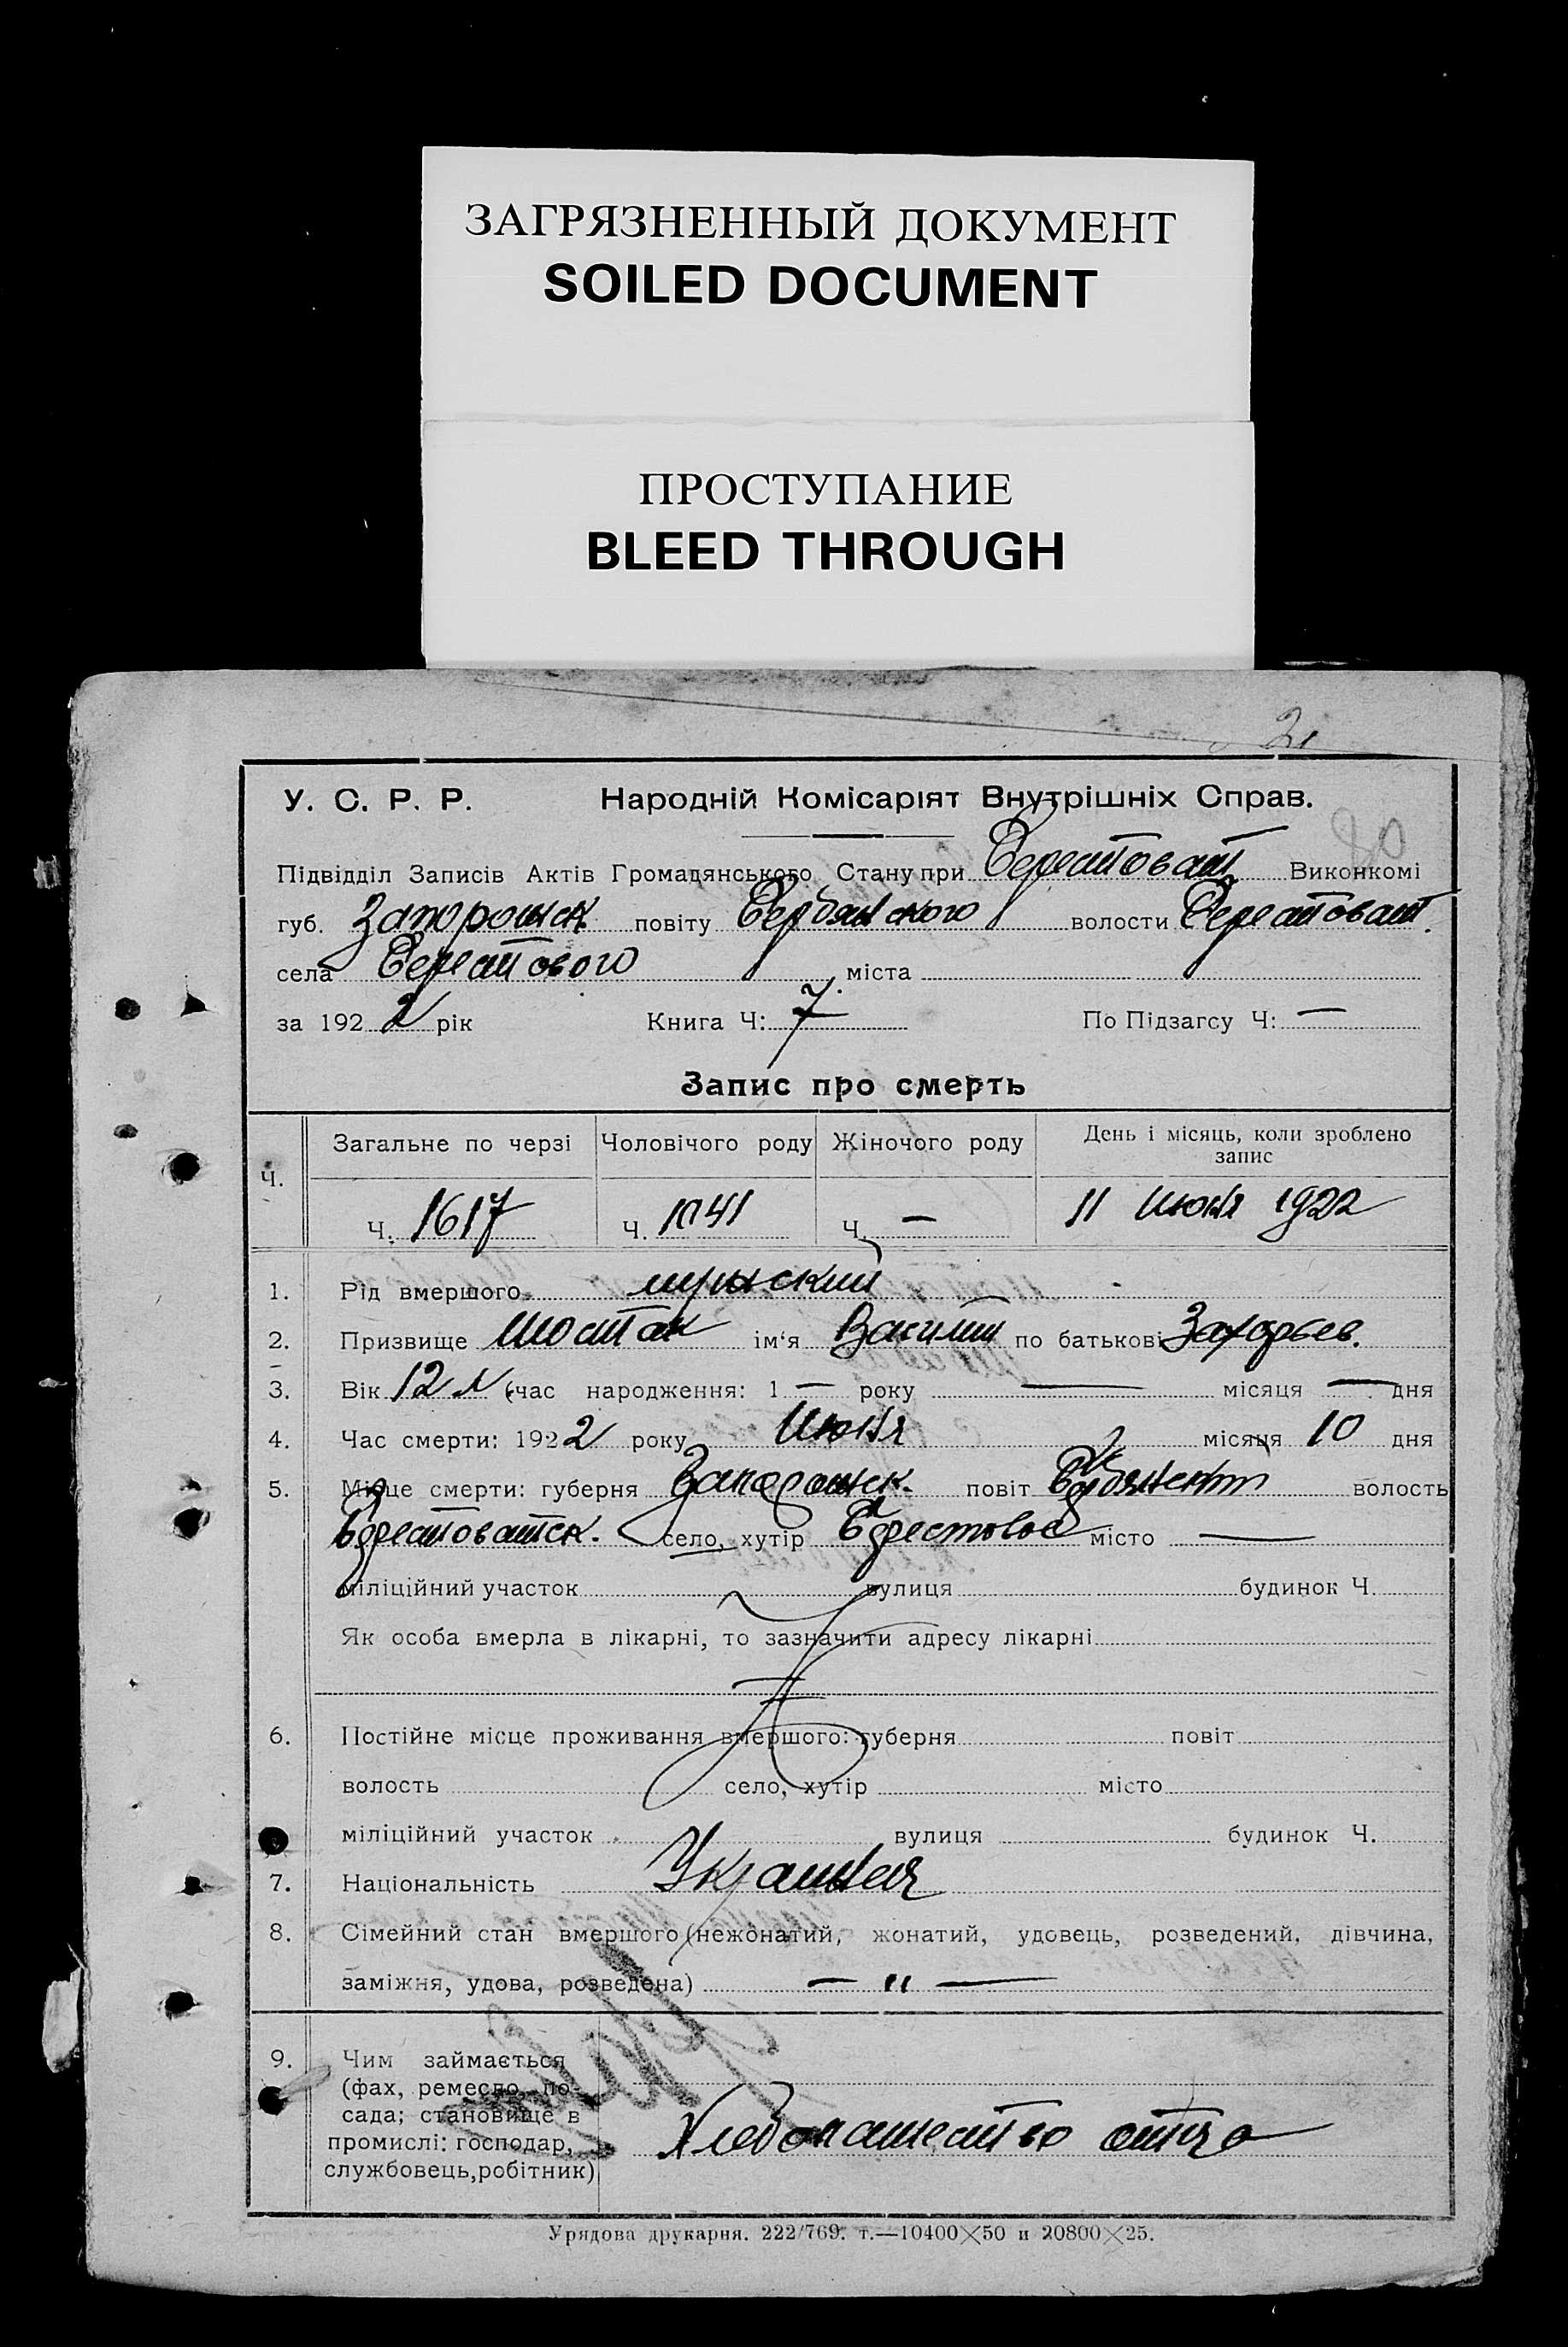 ЗАГРЯЗНЕННЫЙ ДОКУМЕНТ
SOILED DOCUMENT
ПРОСТУПАНИЕ
BLEED THROUGH
2
80
У. С. Р. Р. Народній Комісаріят Внутрішніх Справ.
Підвідділ Записів Актів Громадянського Стану при Берестоват Виконкомі
губ. Запорожск повіту Бердянского волости Берестоват.
села Берестового міста
за 1922 рік Книга Ч: 7. По Підзагсу Ч: —
Запис про смерть
Ч. Загальне по черзі Чоловічого роду Жіночого роду День і місяць, коли зроблено запис
Ч. 1617 Ч. 1041 Ч. — 11 Июня 1922
1. Рід вмершого мужский
2. Призвище Шостак ім‘я Василий по батькові Захарьев.
3. Вік 12 л (час народження: 1 — року — місяця — дня
4. Час смерти: 1922 року Июня місяця 10 дня
5. Місце смерти: губерня Запорожск. повіт Бердянск волость
Берестоватск. село, хутір Берестовое місто —
міліційний участок вулиця будинок Ч.
Як особа вмерла в лікарні, то зазначити адресу лікарні
6. Постійне місце проживання вмершого: губерня повіт
волость село, хутір місто
міліційний участок вулиця будинок Ч.
7. Національність Украинец
8. Сімейний стан вмершого (нежонатий, жонатий, удовець, розведений, дівчина,
заміжня, удова, розведена) — " —
9. Чим займається
(фах, ремесло, по-
сада; становище в
промислі: господар,
службовець, робітник)
Хлебопашество отца
Урядова друкарня. 222/769. т.—10400×50 и 20800×25.